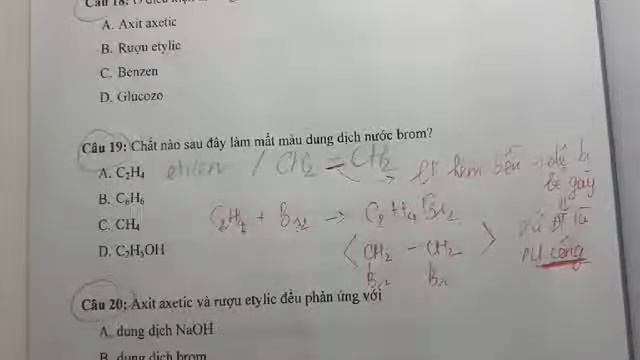 Câu 18:
A. Axit axetic
B. Rượu etylic
C. Benzen
D. Glucozo
Câu 19: Chất nào sau đây làm mất màu dung dịch nước brom?
A. C₂H₄ etilen / CH₂ = CH₂
→ lk kém bền → dễ bị
bẻ gãy
B. C₆H₆
C₂H₄ + Br₂ → C₂H₄Br₂
C. CH₄
CH₂ – CH₂
là
cộng
D. C₂H₅OH
Câu 20: Axit axetic và rượu etylic đều phản ứng với
A. dung dịch NaOH
B. dung dịch brom